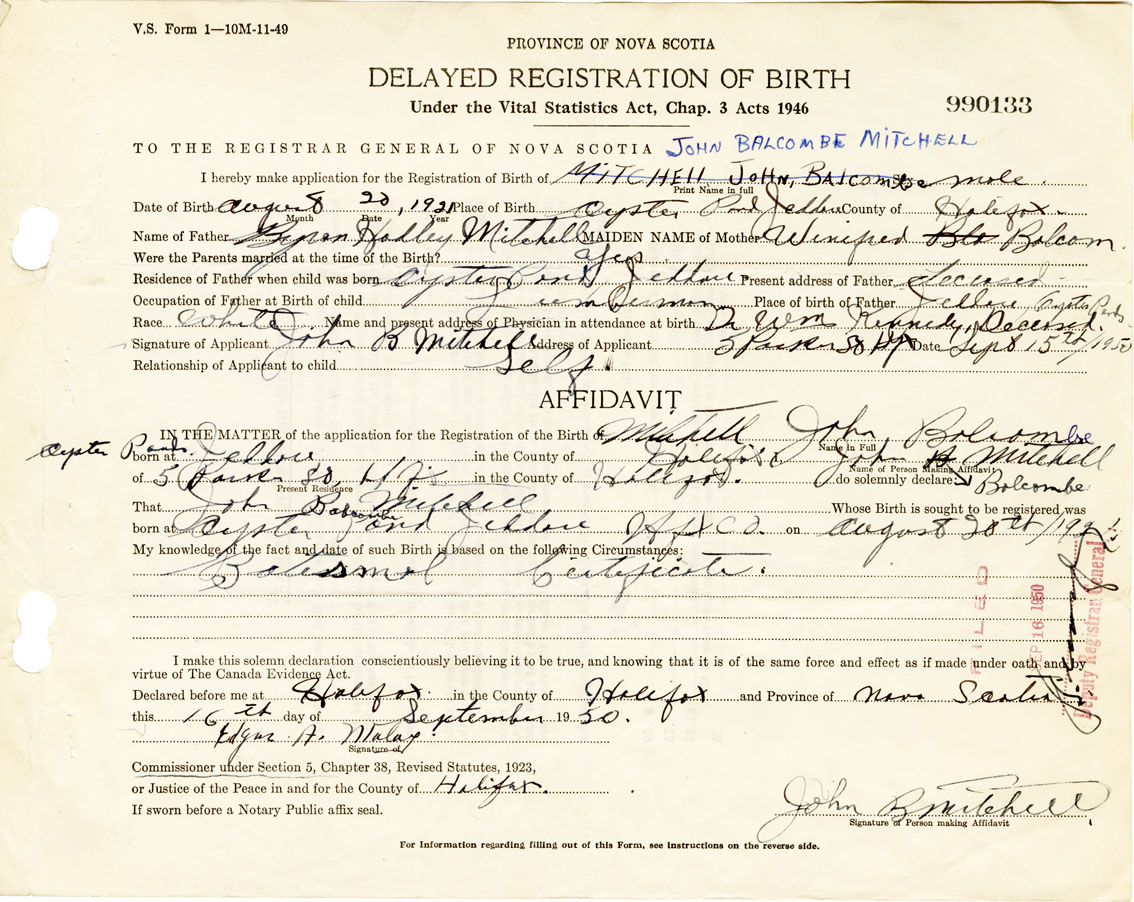 V.S. Form 1—10M-11-49
PROVINCE OF NOVA SCOTIA
DELAYED REGISTRATION OF BIRTH
Under the Vital Statistics Act, Chap. 3 Acts 1946
990133
TO THE REGISTRAR GENERAL OF NOVA SCOTIA JOHN BALCOMBE MITCHELL
I hereby make application for the Registration of Birth of MITCHELL JOHN, BALCOMBE male
Print Name in full
Date of Birth August 20, 1921 Place of Birth Oyster Pond Jeddore County of Halifax
Month Date Year
Name of Father Byron Hadley Mitchell MAIDEN NAME of Mother Winifred Balcom.
Were the Parents married at the time of the Birth? yes
Residence of Father when child was born Oyster Pond Jeddore Present address of Father Deceased
Occupation of Father at Birth of child Lumberman Place of birth of Father Jeddore Oyster Ponds
Race White Name and present address of Physician in attendance at birth Dr Wm Kennedy, Deceased.
Signature of Applicant John B Mitchell Address of Applicant 5 Parker St Hfx Date Sept 15th/1950
Relationship of Applicant to child Self.
AFFIDAVIT
IN THE MATTER of the application for the Registration of the Birth of Mitchell John, Balcombe
Name in Full
Oyster Ponds
born at Jeddore in the County of Halifax John B Mitchell
Name of Person Making Affidavit
of 5 Parker St, Hfx in the County of Halifax. do solemnly declare Balcombe
Present Residence
That John Balcombe Mitchell Whose Birth is sought to be registered was
born at Oyster Pond Jeddore Hfx Co. on August 20th/1921
My knowledge of the fact and date of such Birth is based on the following Circumstances:
Batesmal Certificate.
FILED
SEP 16 1950
Deputy Registrar General
I make this solemn declaration conscientiously believing it to be true, and knowing that it is of the same force and effect as if made under oath and by
virtue of The Canada Evidence Act.
Declared before me at Halifax in the County of Halifax and Province of Nova Scotia
this 16th day of September 1950.
Edgar A.
Signature of
Commissioner under Section 5, Chapter 38, Revised Statutes, 1923,
or Justice of the Peace in and for the County of Halifax.
If sworn before a Notary Public affix seal.
John B Mitchell
Signature of Person making Affidavit
For Information regarding filling out of this Form, see instructions on the reverse side.